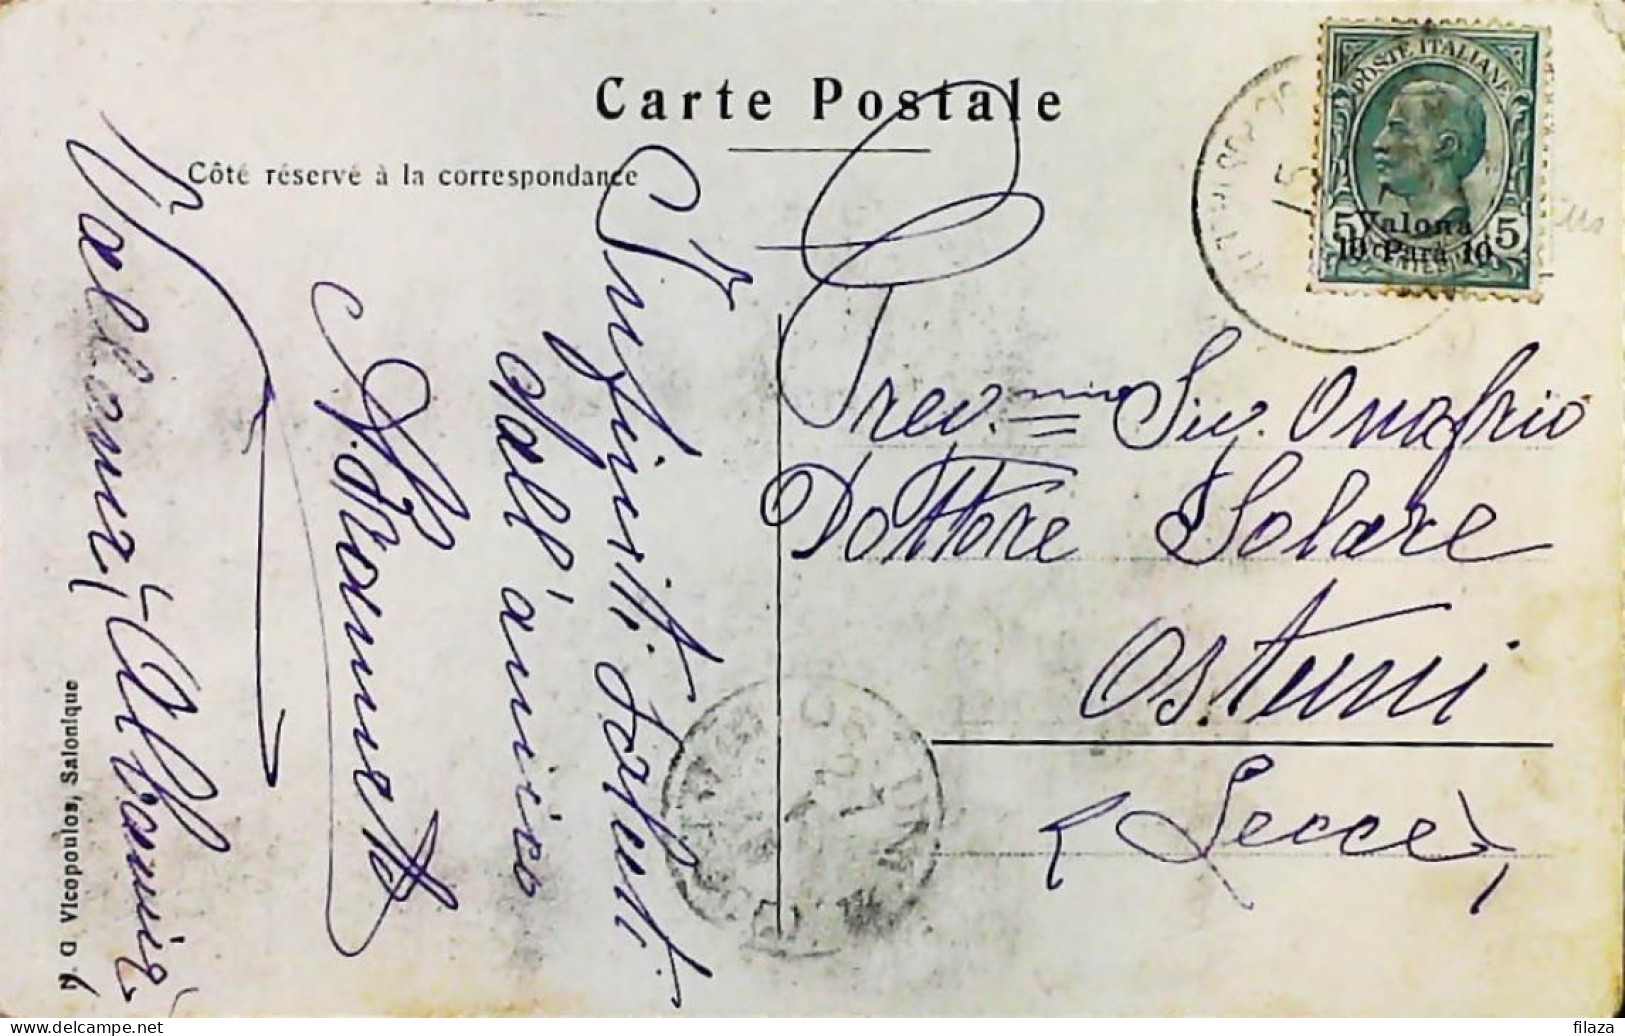 Carte Postale
Côté réservé à la correspondance
POSTE ITALIANE
5 Valona 5
10 Para 10
Infiniti saluti
dall'amico
Vallona, (Albania)
N. G. Vicopoulos, Salonique
Prev.mo Sig. Onofrio
Dottore Solare
Ostuni
(Lecce)
delcampe.net
filaza